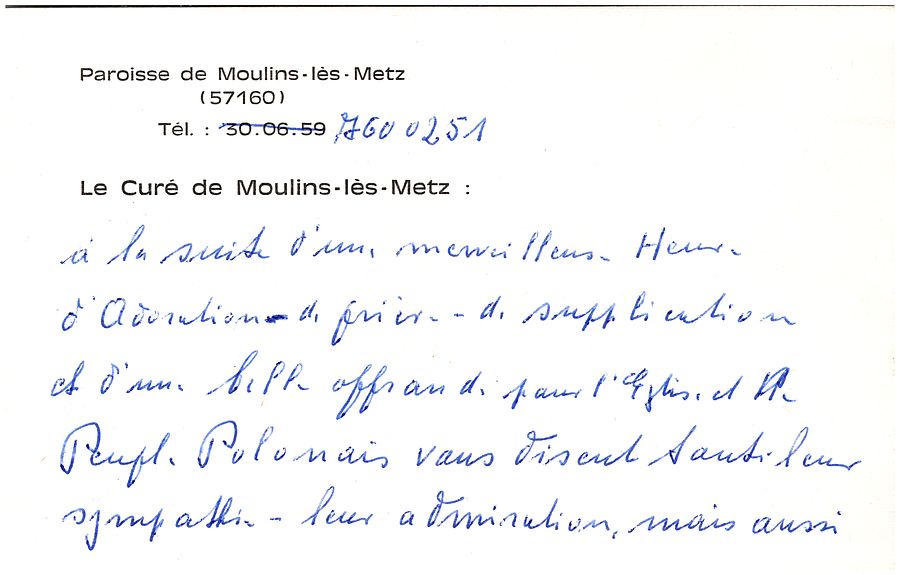 Paroisse de Moulins-lès-Metz
(57160)
Tél. : 30.06.59 7600251
Le Curé de Moulins-lès-Metz :
à la suite d'une merveilleuse Heure
d'Adoration - de prière - de supplication
et d'une belle offrande pour l'Eglise et le
Peuple Polonais vous disent toute leur
sympathie - leur admiration, mais aussi